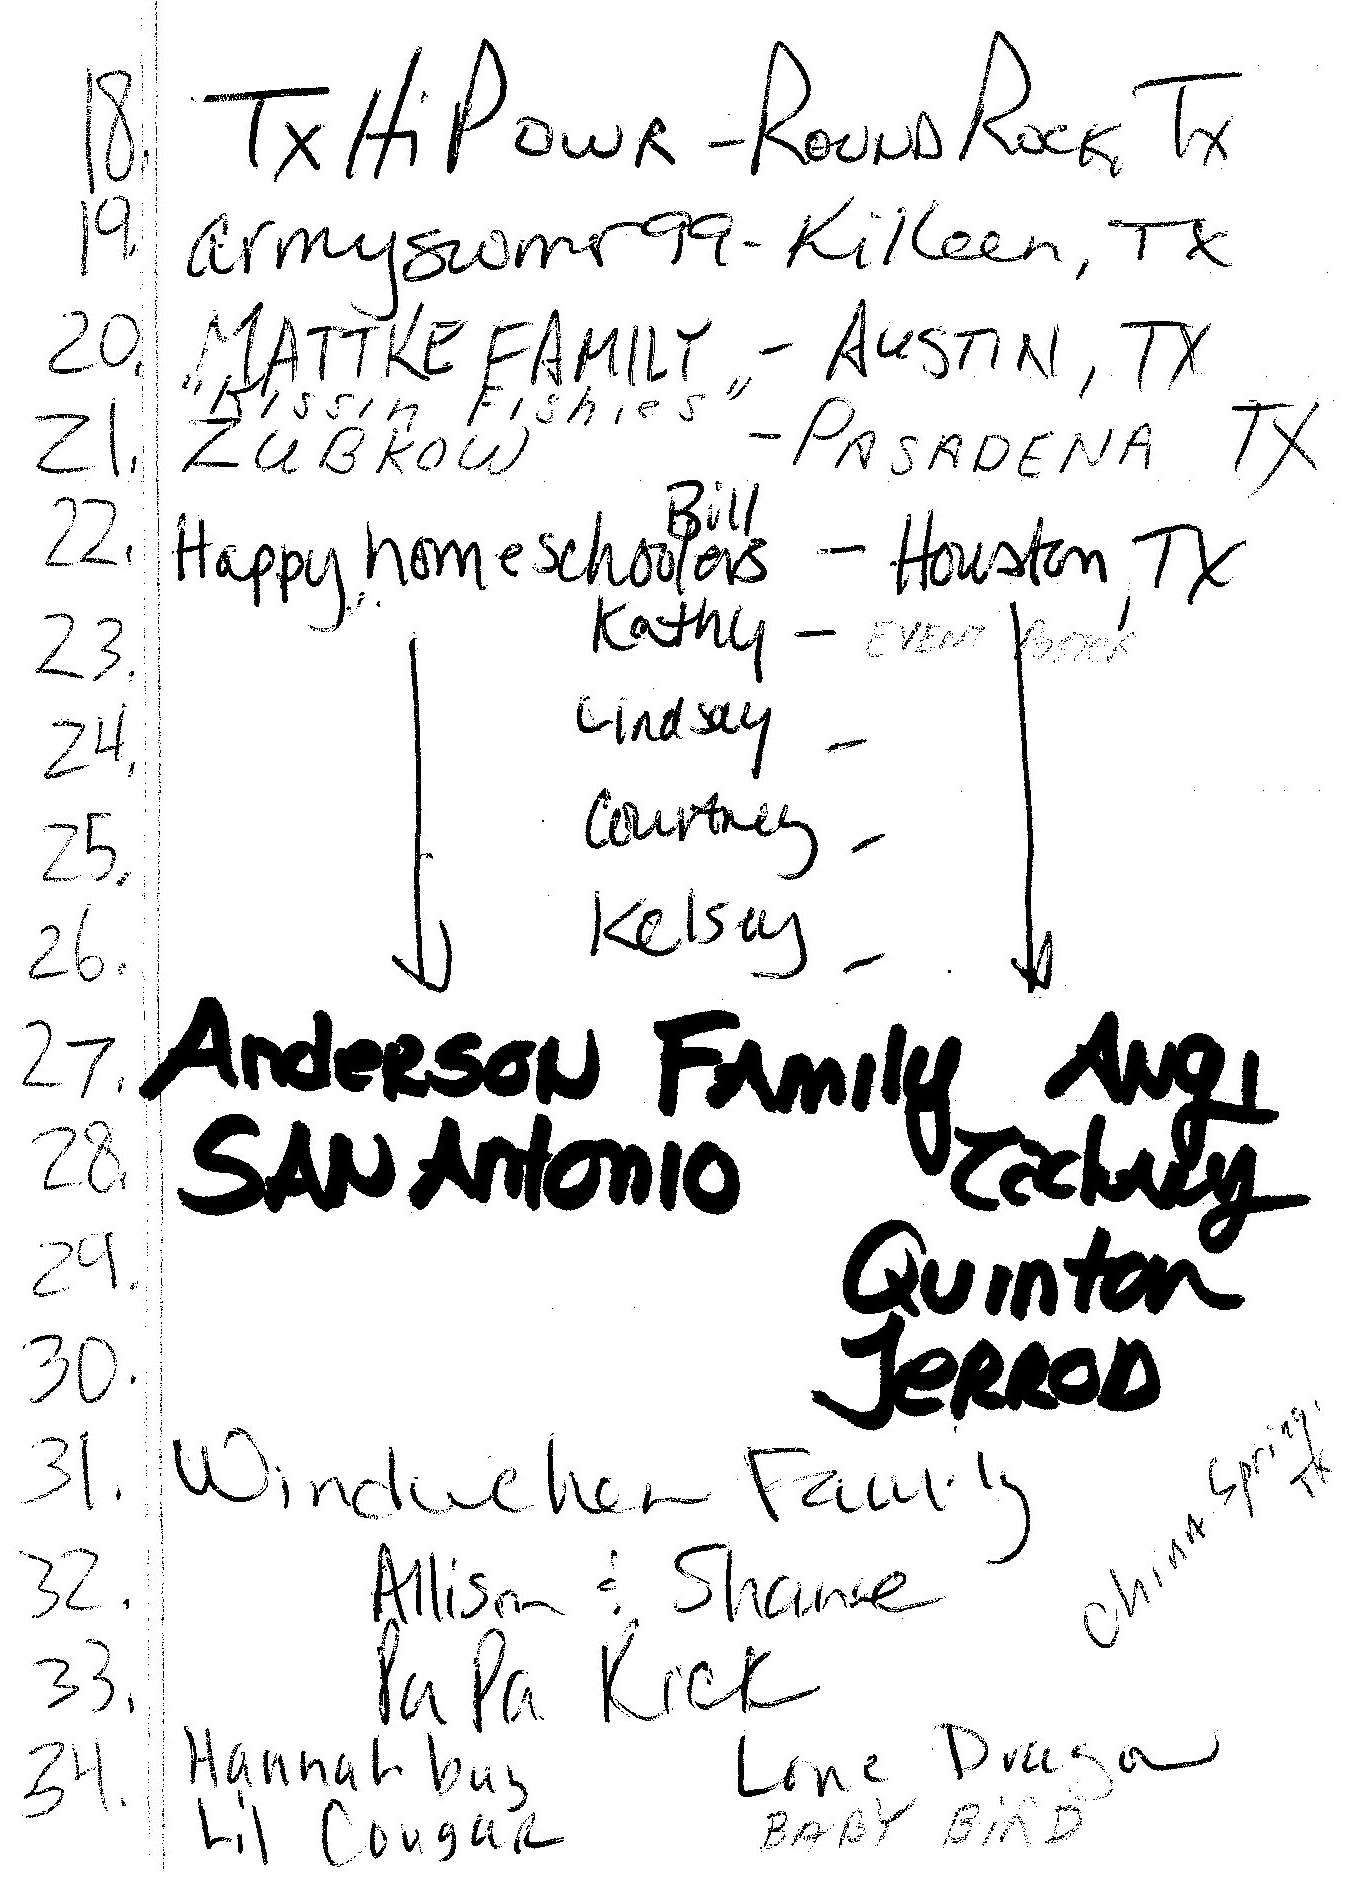 18. Tx Hi Powr - Round Rock, Tx
19. armyswmr99 - Killeen, TX
20. MATTKE FAMILY - AUSTIN, TX
"Kissin Fishies"
21. ZUBKOW - PASADENA TX
Bill
22. Happy homeschoolers - Houston, TX
23. Kathy - EVENT
24. Lindsay -
25. Courtney -
26. Kelsay -
27. Anderson Family Angi
28. SAN Antonio Zachary
29. Quinton
30. JERROD
31. Family China Spring, TX
32. Allison & Shanae
33. PaPa Kick
34. Hannah bug Lone Dragon
Lil Cougar BABY BIRD